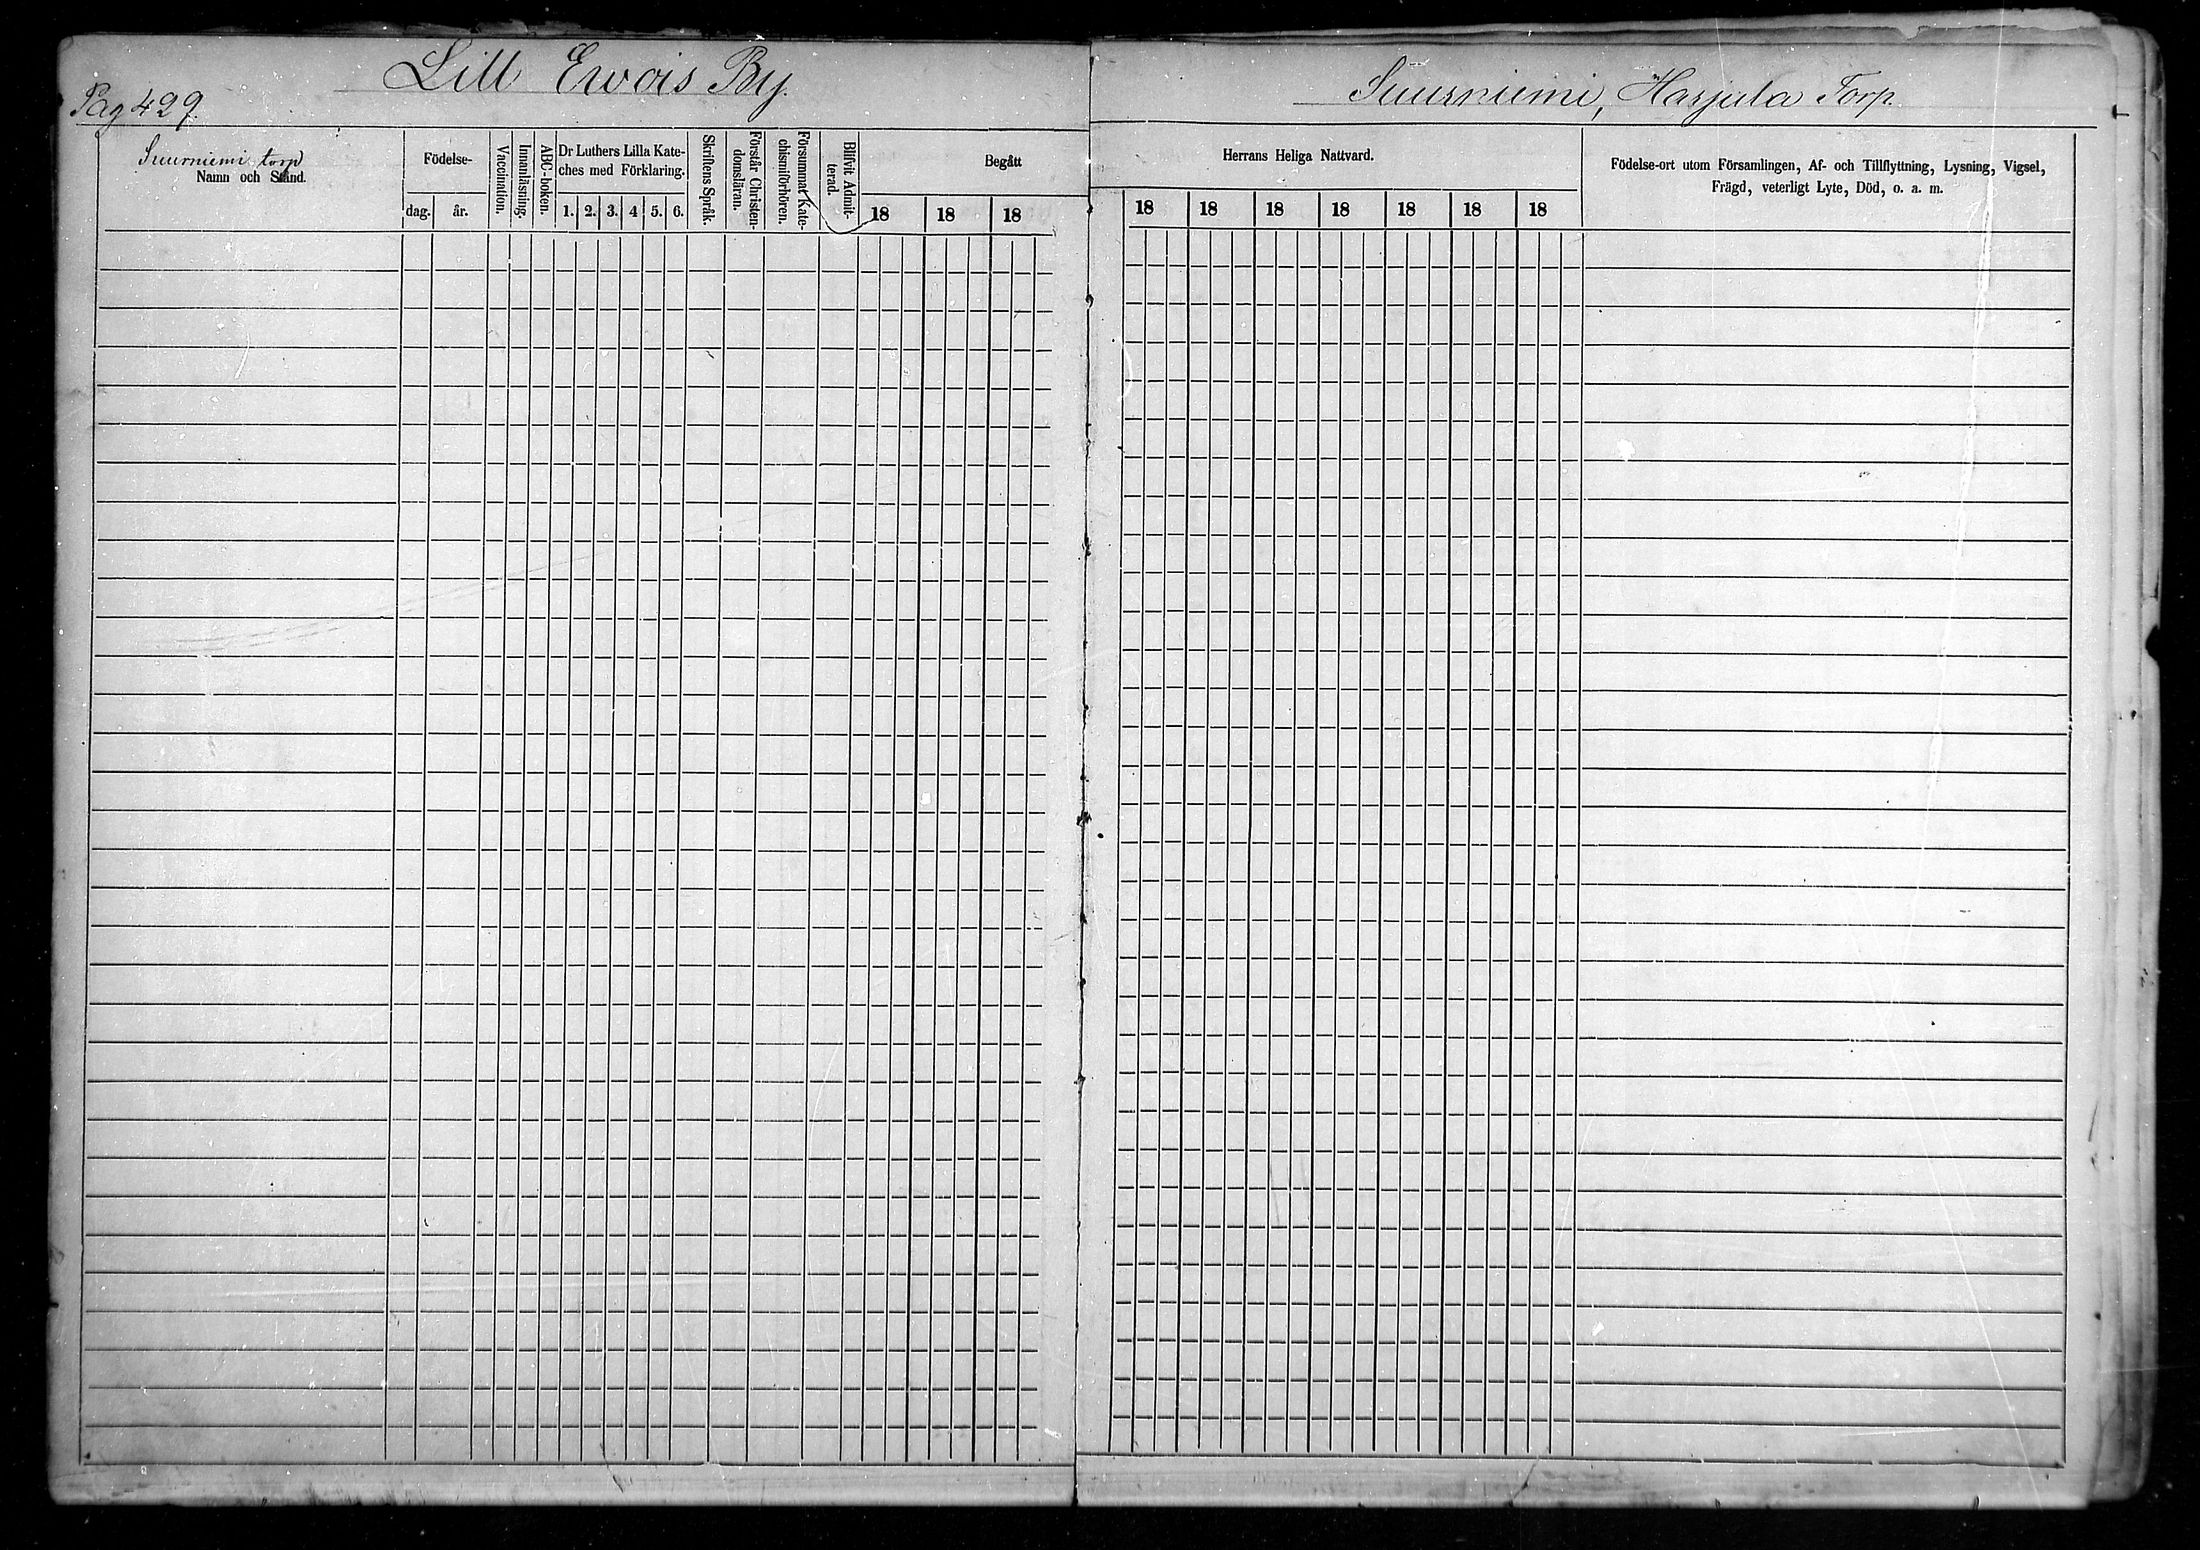 Lill Ewois By.
Pag 429.
Suurniemi, Harjula Torp.
Suurniemi torp
Namn och Stånd.
Födelse-
dag. år.
Vaccination.
Innanläsning.
ABC-boken.
Dr Luthers Lilla Kate-
ches med Förklaring.
1. 2. 3. 4 5. 6.
Skriftens Språk.
Förstår Christen-
domsläran.
Försummat Kate-
chismiförhören.
Blifvit Admit-
terad.
Begått
18 18 18
Herrans Heliga Nattvard.
18 18 18 18 18 18 18
Födelse-ort utom Församlingen, Af- och Tillflyttning, Lysning, Vigsel,
Frägd, veterligt Lyte, Död, o. a. m.